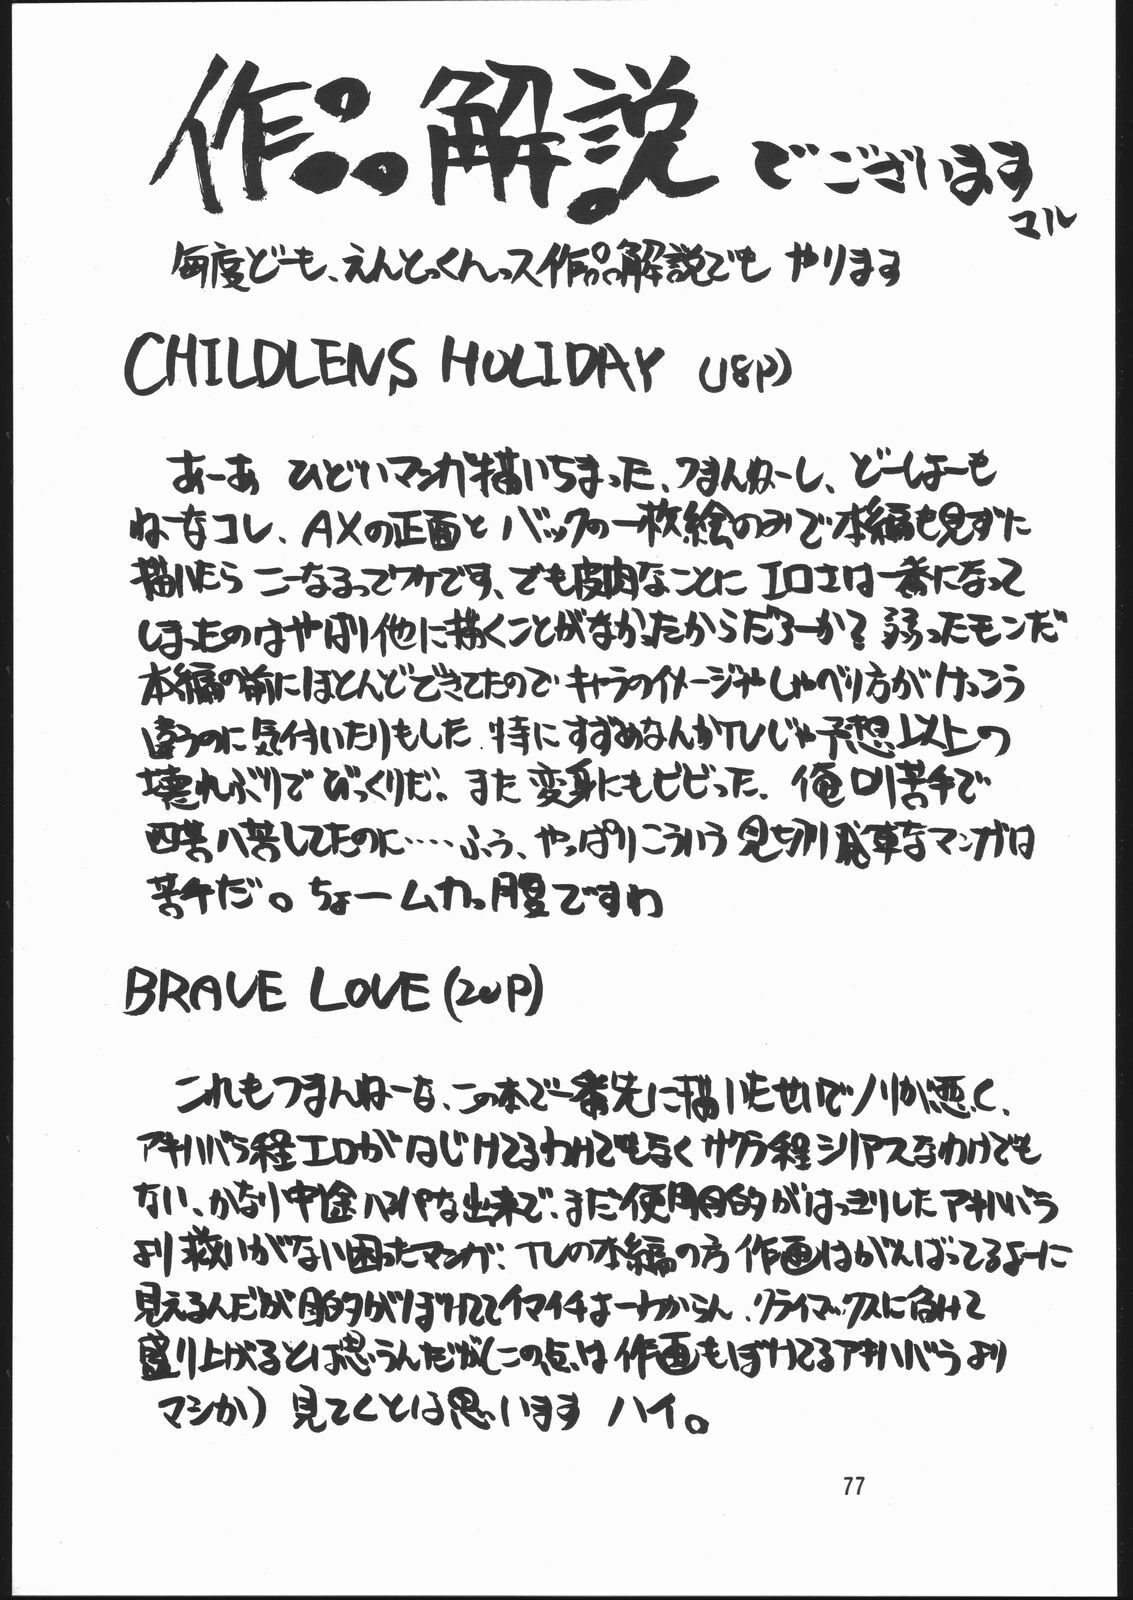 作品解説でございます
マル
毎度どーも、えんとっくんっス作品解説でも やります
CHILDLENS HOLIDAY (18P)
あーあ ひどいマンガ描いちまった、つまんねーし、どーしよーも
ねーなコレ、AXの正面とバックの一枚絵のみで本編も見ずに
描いたら こーなるってワケです、でも皮肉なことに エロさは一番になって
しまったのはやはり他に描くことがなかったからだろーか? 弱ったモンだ
本編の前にほとんどできてたので キャラのイメージやしゃべり方がけっこう
違うのに気付いたりもした 特にすずめなんかTVじゃ予想以上の
壊れぶりでびっくりだ。また変身にもビビった、俺ロリ苦手で
四苦八苦してたのに‥‥ふぅ、やっぱりこういう見切り発車なマンガは
苦手だ。ちょームカっ腹ですわ
BRAVE LOVE (20P)
これもつまんねーな、この本で一番先に描いたせいでノリが悪く、
アキハバラ程エロがはじけてるわけでもなく サクラ程シリアスなわけでも
ない、かなり中途ハンパな出来で、まだ使用目的がはっきりしたアキハバラ
より救いがない困ったマンガ、TVの本編の方 作画はがんばってるよーに
見えるんだが 目的がぼけててイマイチよーわからん、クライマックスに向けて
盛り上げるとは思うんだが(この点は作画もぼけてるアキハバラより
マシか) 見てくとは思います ハイ。
77